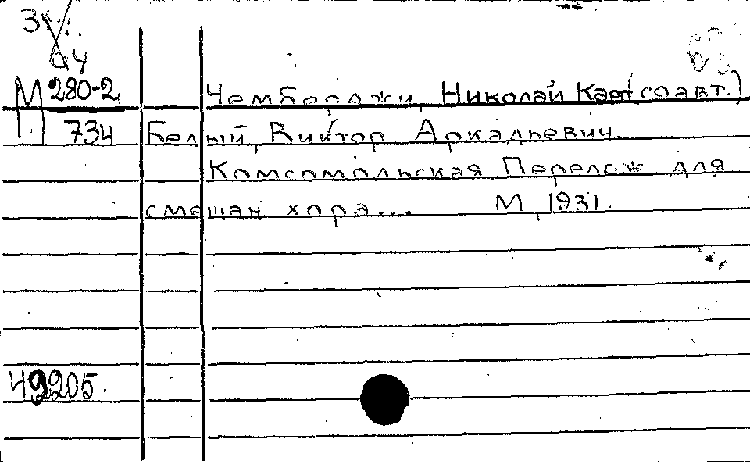 М 280-2 Чемберджи, Николай Кар (соавт.)
734 Белый, Виктор Аркадьевич.
Комсомольская. Перелож. для
смешан. хора... М., 1931.
49205.